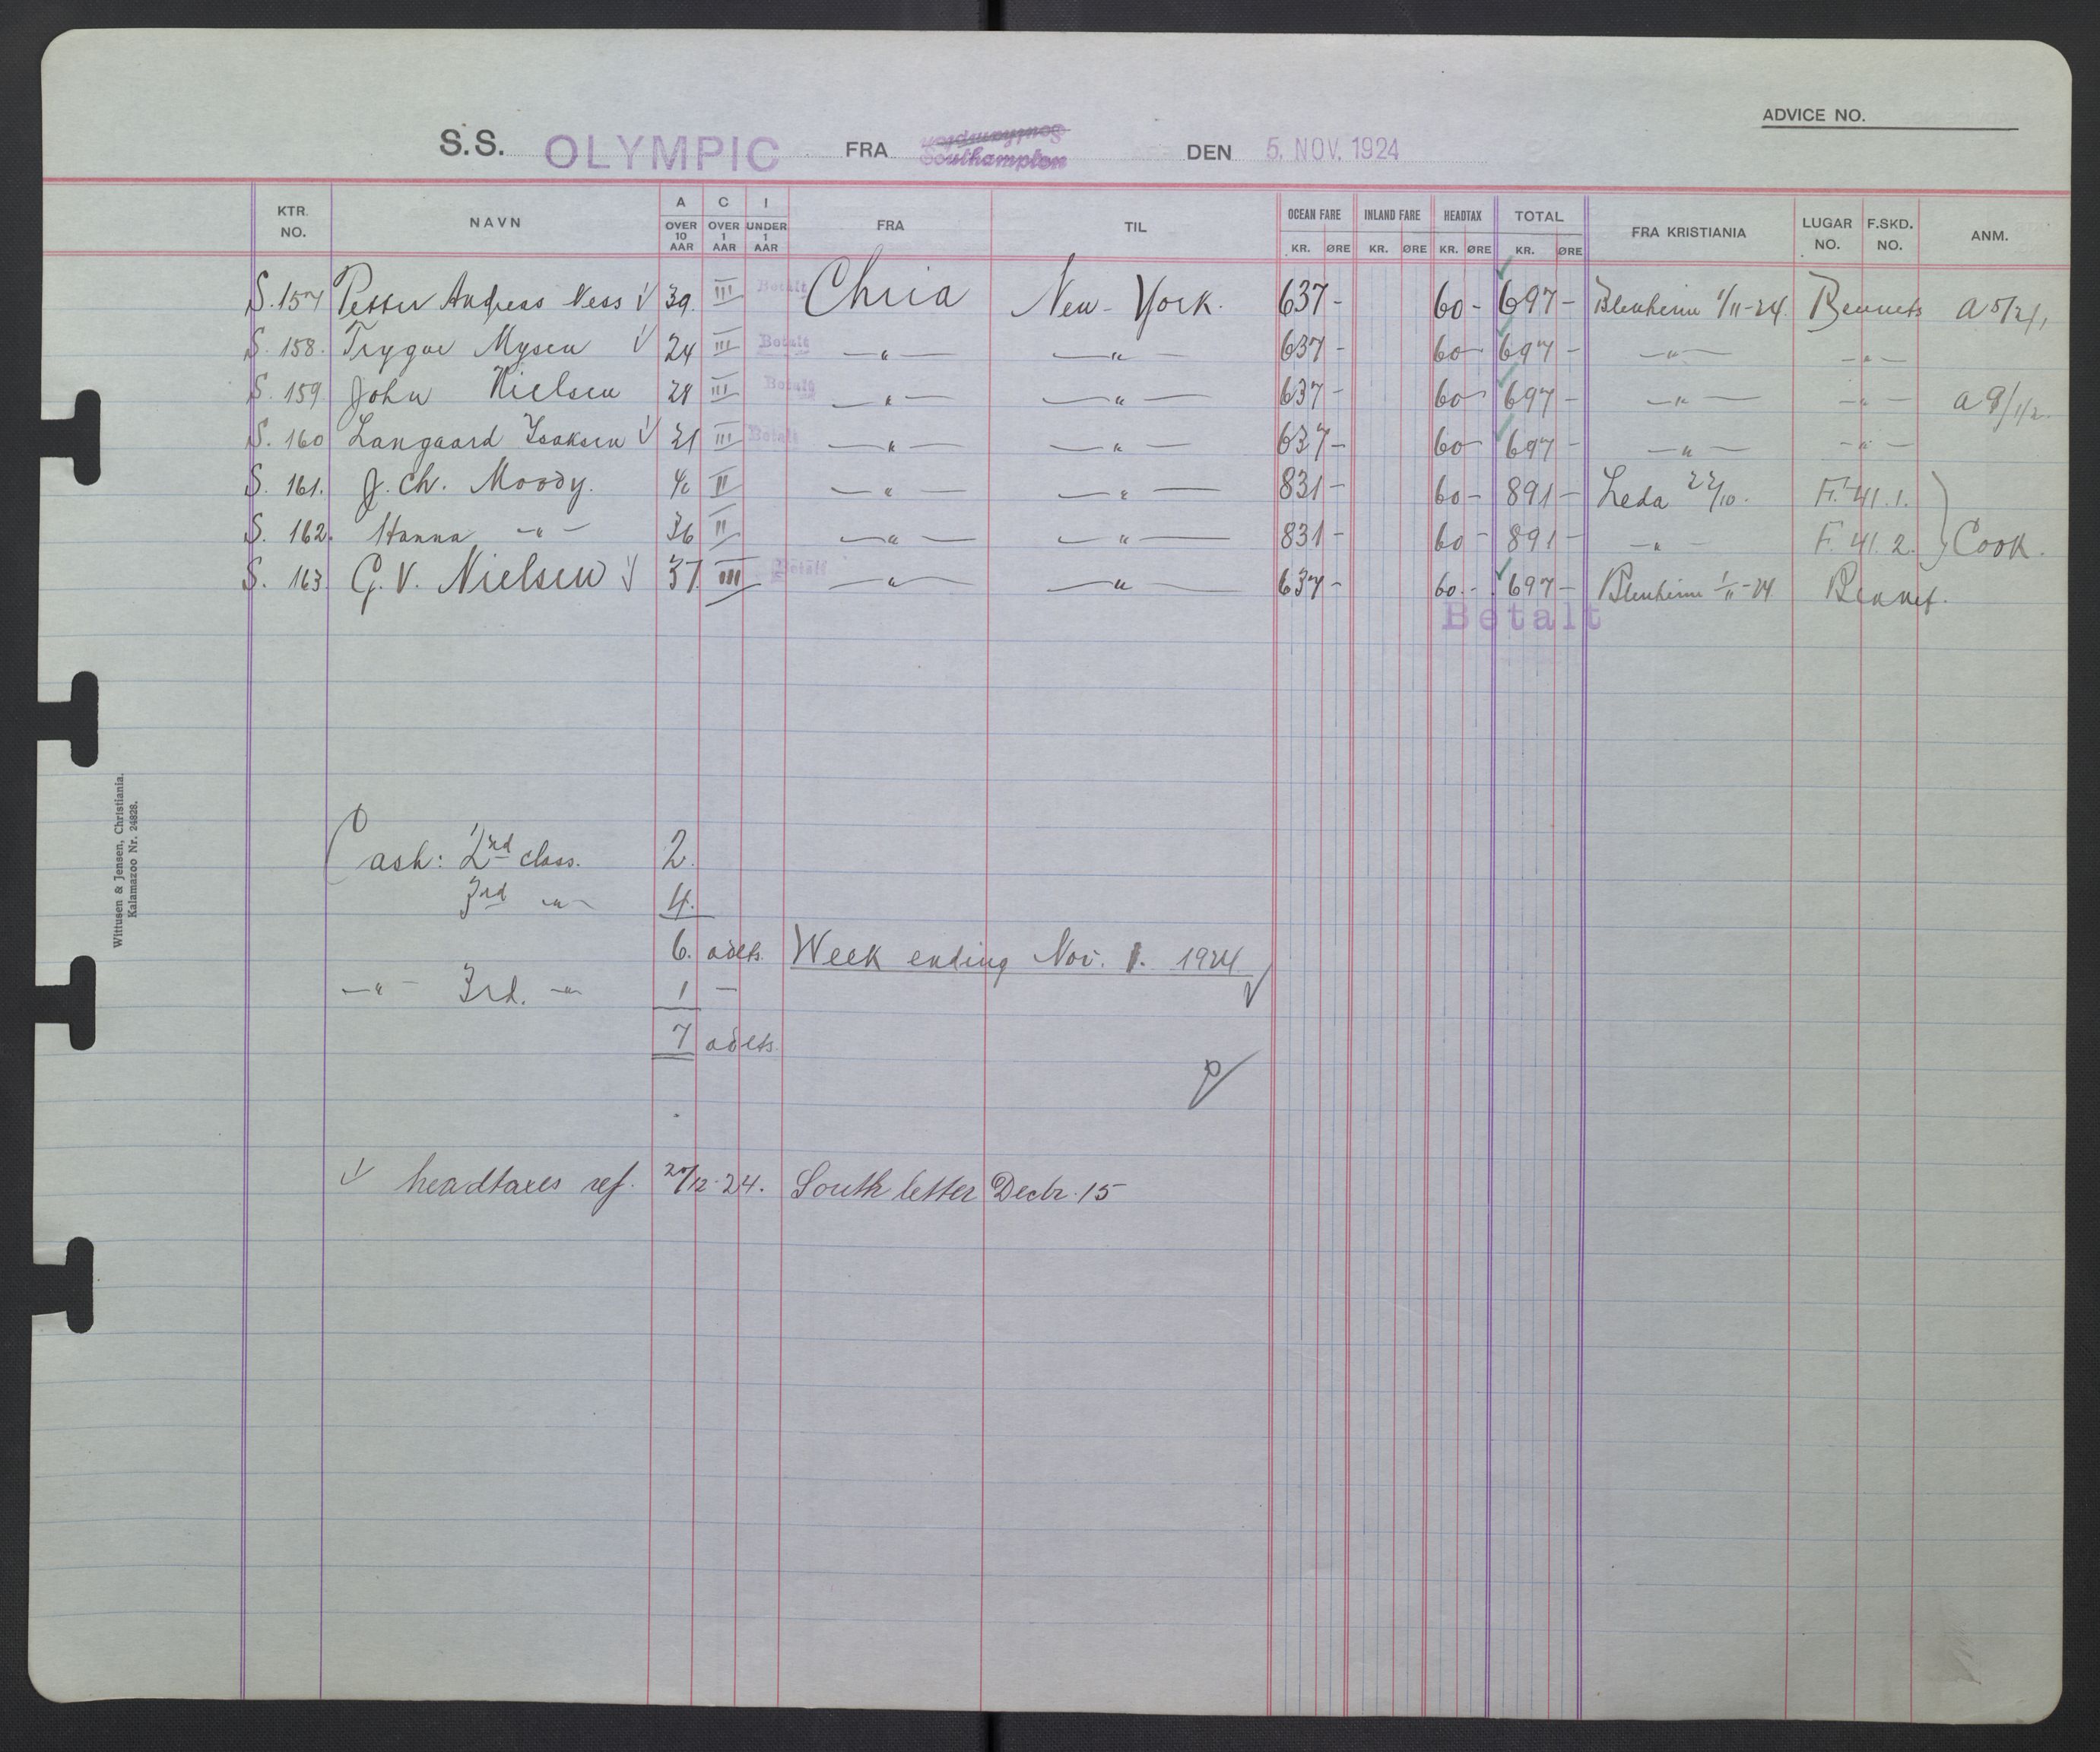 ADVICE NO.
S.S. OLYMPIC FRA Southampton DEN 5. NOV. 1924
KTR. NO. NAVN A OVER 10 AAR C OVER 1 AAR I UNDER 1 AAR FRA TIL OCEAN FARE KR. ØRE INLAND FARE KR. ØRE HEADTAX KR. ØRE TOTAL KR. ØRE FRA KRISTIANIA LUGAR NO. F.SKD. NO. ANM.
S. 157 Petter Andreas Ness √ 39. III Betalt Chria New-York. 637- 60- 697- Blenheim 1/11-24. Bennets
S. 158. Trygve Mysen √ 24 III Betalt —"— —"— 637- 60- 697- —"— -"-
S. 159 John Nielsen 28 III Betalt —"— —"— 637- 60- 697- —"— -"-
S. 160 Langaard Isaksen √ 21 III Betalt —"— —"— 637- 60- 697- —"— -"-
S. 161. J. Ch. Moody. II —"— —"— 831- 60- 891- Leda 22/10. F. 41. 1.
S. 162. Hanna -"- 36 II —"— —"— 831- 60- 891- -"- F. 41. 2. } Cook.
S. 163 G. V. Nielsen √ 37 III Betalt —"— —"— 637- 60.- 697- Blenheim 1/11-24 Bennet.
Betalt
Cash: 2nd class. 2.
3rd -"- 4.
6. adlts. Week ending Nov. 1. 1924
-"- 3rd. -"- 1 -
7 adlts.
√ headtaxes ref. 27/12-24. South letter Decbr. 15
Wittusen & Jensen, Christiania.
Kalamazoo Nr. 24828.